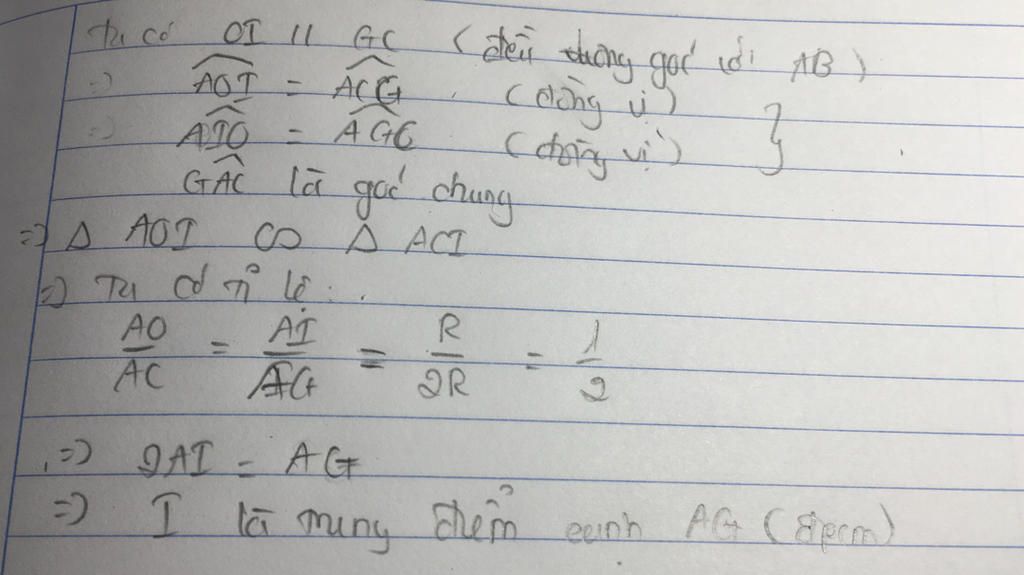 Ta có OI // GC (đều vuông góc với AB)
=> AOI = ACG (đồng vị)
=> AIO = AGC (đồng vị) }
GAC là góc chung
=> Δ AOI ∽ Δ ACI
=> Ta có tỉ lệ:
AO/AC = AI/AG = R/2R = 1/2
=> 2AI = AG
=> I là trung điểm AG (đpcm)